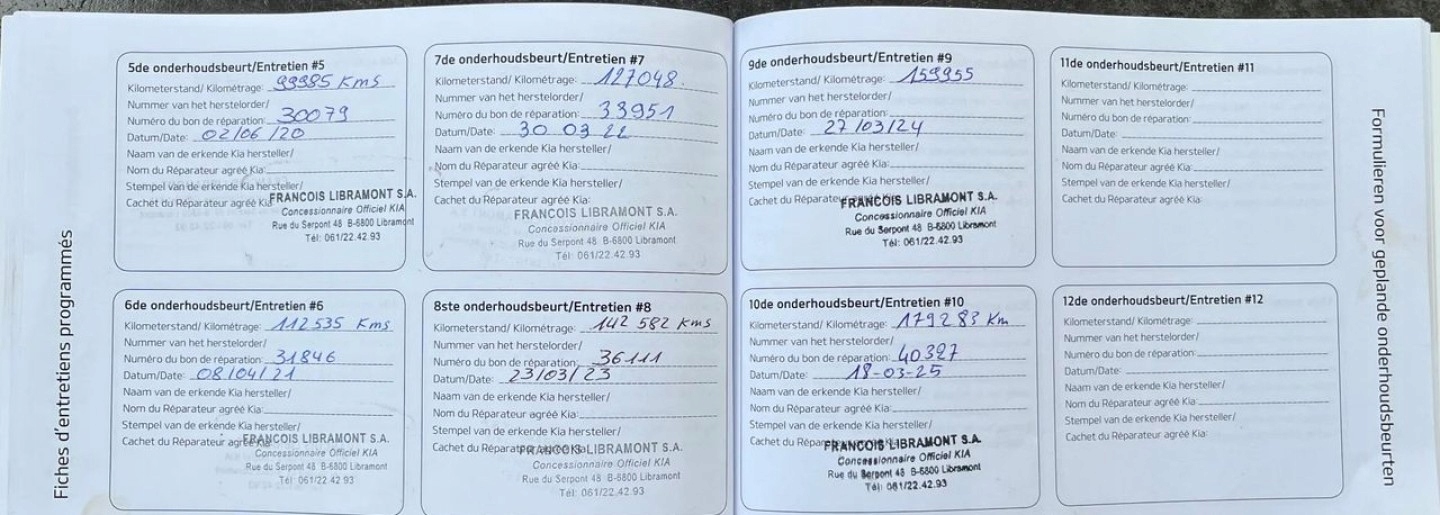 Fiches d'entretiens programmés
5de onderhoudsbeurt/Entretien #5
Kilometerstand/ Kilométrage: 99985 Kms
Nummer van het herstelorder/
Numéro du bon de réparation: 30079
Datum/Date: 02/06/20
Naam van de erkende Kia hersteller/
Nom du Réparateur agréé Kia:
Stempel van de erkende Kia hersteller/
Cachet du Réparateur agréé Kia
FRANCOIS LIBRAMONT S.A.
Concessionnaire Officiel KIA
Rue du Serpont 48 B-6800 Libramont
Tél: 061/22.42.93
6de onderhoudsbeurt/Entretien #6
Kilometerstand/ Kilométrage: 112535 Kms
Nummer van het herstelorder/
Numéro du bon de réparation: 31846
Datum/Date: 08/04/21
Naam van de erkende Kia hersteller/
Nom du Réparateur agréé Kia:
Stempel van de erkende Kia hersteller/
Cachet du Réparateur agréé Kia
FRANCOIS LIBRAMONT S.A.
Concessionnaire Officiel KIA
Rue du Serpont 48 B-6800 Libramont
Tél: 061/22 42.93
7de onderhoudsbeurt/Entretien #7
Kilometerstand/ Kilométrage: 127048
Nummer van het herstelorder/
Numéro du bon de réparation: 33951
Datum/Date: 30 03 22
Naam van de erkende Kia hersteller/
Nom du Réparateur agréé Kia:
Stempel van de erkende Kia hersteller/
Cachet du Réparateur agréé Kia:
FRANCOIS LIBRAMONT S.A.
Concessionnaire Officiel KIA
Rue du Serpont 48 B-6800 Libramont
Tél: 061/22.42.93
8ste onderhoudsbeurt/Entretien #8
Kilometerstand/ Kilométrage: 142 582 Kms
Nummer van het herstelorder/
Numéro du bon de réparation: 36111
Datum/Date: 23/03/23
Naam van de erkende Kia hersteller/
Nom du Réparateur agréé Kia:
Stempel van de erkende Kia hersteller/
Cachet du Réparateur agréé Kia
FRANCOIS LIBRAMONT S.A.
Concessionnaire Officiel KIA
Rue du Serpont 48 B-6800 Libramont
Tél: 061/22.42.93
9de onderhoudsbeurt/Entretien #9
Kilometerstand/ Kilométrage: 159955
Nummer van het herstelorder/
Numéro du bon de réparation:
Datum/Date: 27/03/24
Naam van de erkende Kia hersteller/
Nom du Réparateur agréé Kia:
Stempel van de erkende Kia hersteller/
Cachet du Réparateur agréé Kia
FRANCOIS LIBRAMONT S.A.
Concessionnaire Officiel KIA
Rue du Serpont 48 B-6800 Libramont
Tél: 061/22.42.93
10de onderhoudsbeurt/Entretien #10
Kilometerstand/ Kilométrage: 179283 Km
Nummer van het herstelorder/
Numéro du bon de réparation: 40327
Datum/Date: 18-03-25
Naam van de erkende Kia hersteller/
Nom du Réparateur agréé Kia:
Stempel van de erkende Kia hersteller/
Cachet du Réparateur agréé Kia
FRANCOIS LIBRAMONT S.A.
Concessionnaire Officiel KIA
Rue du Serpont 48 B-6800 Libramont
Tél: 061/22.42.93
11de onderhoudsbeurt/Entretien #11
Kilometerstand/ Kilométrage:
Nummer van het herstelorder/
Numéro du bon de réparation:
Datum/Date:
Naam van de erkende Kia hersteller/
Nom du Réparateur agréé Kia:
Stempel van de erkende Kia hersteller/
Cachet du Réparateur agréé Kia:
12de onderhoudsbeurt/Entretien #12
Kilometerstand/ Kilométrage:
Nummer van het herstelorder/
Numéro du bon de réparation:
Datum/Date:
Naam van de erkende Kia hersteller/
Nom du Réparateur agréé Kia:
Stempel van de erkende Kia hersteller/
Cachet du Réparateur agréé Kia:
Formulieren voor geplande onderhoudsbeurten